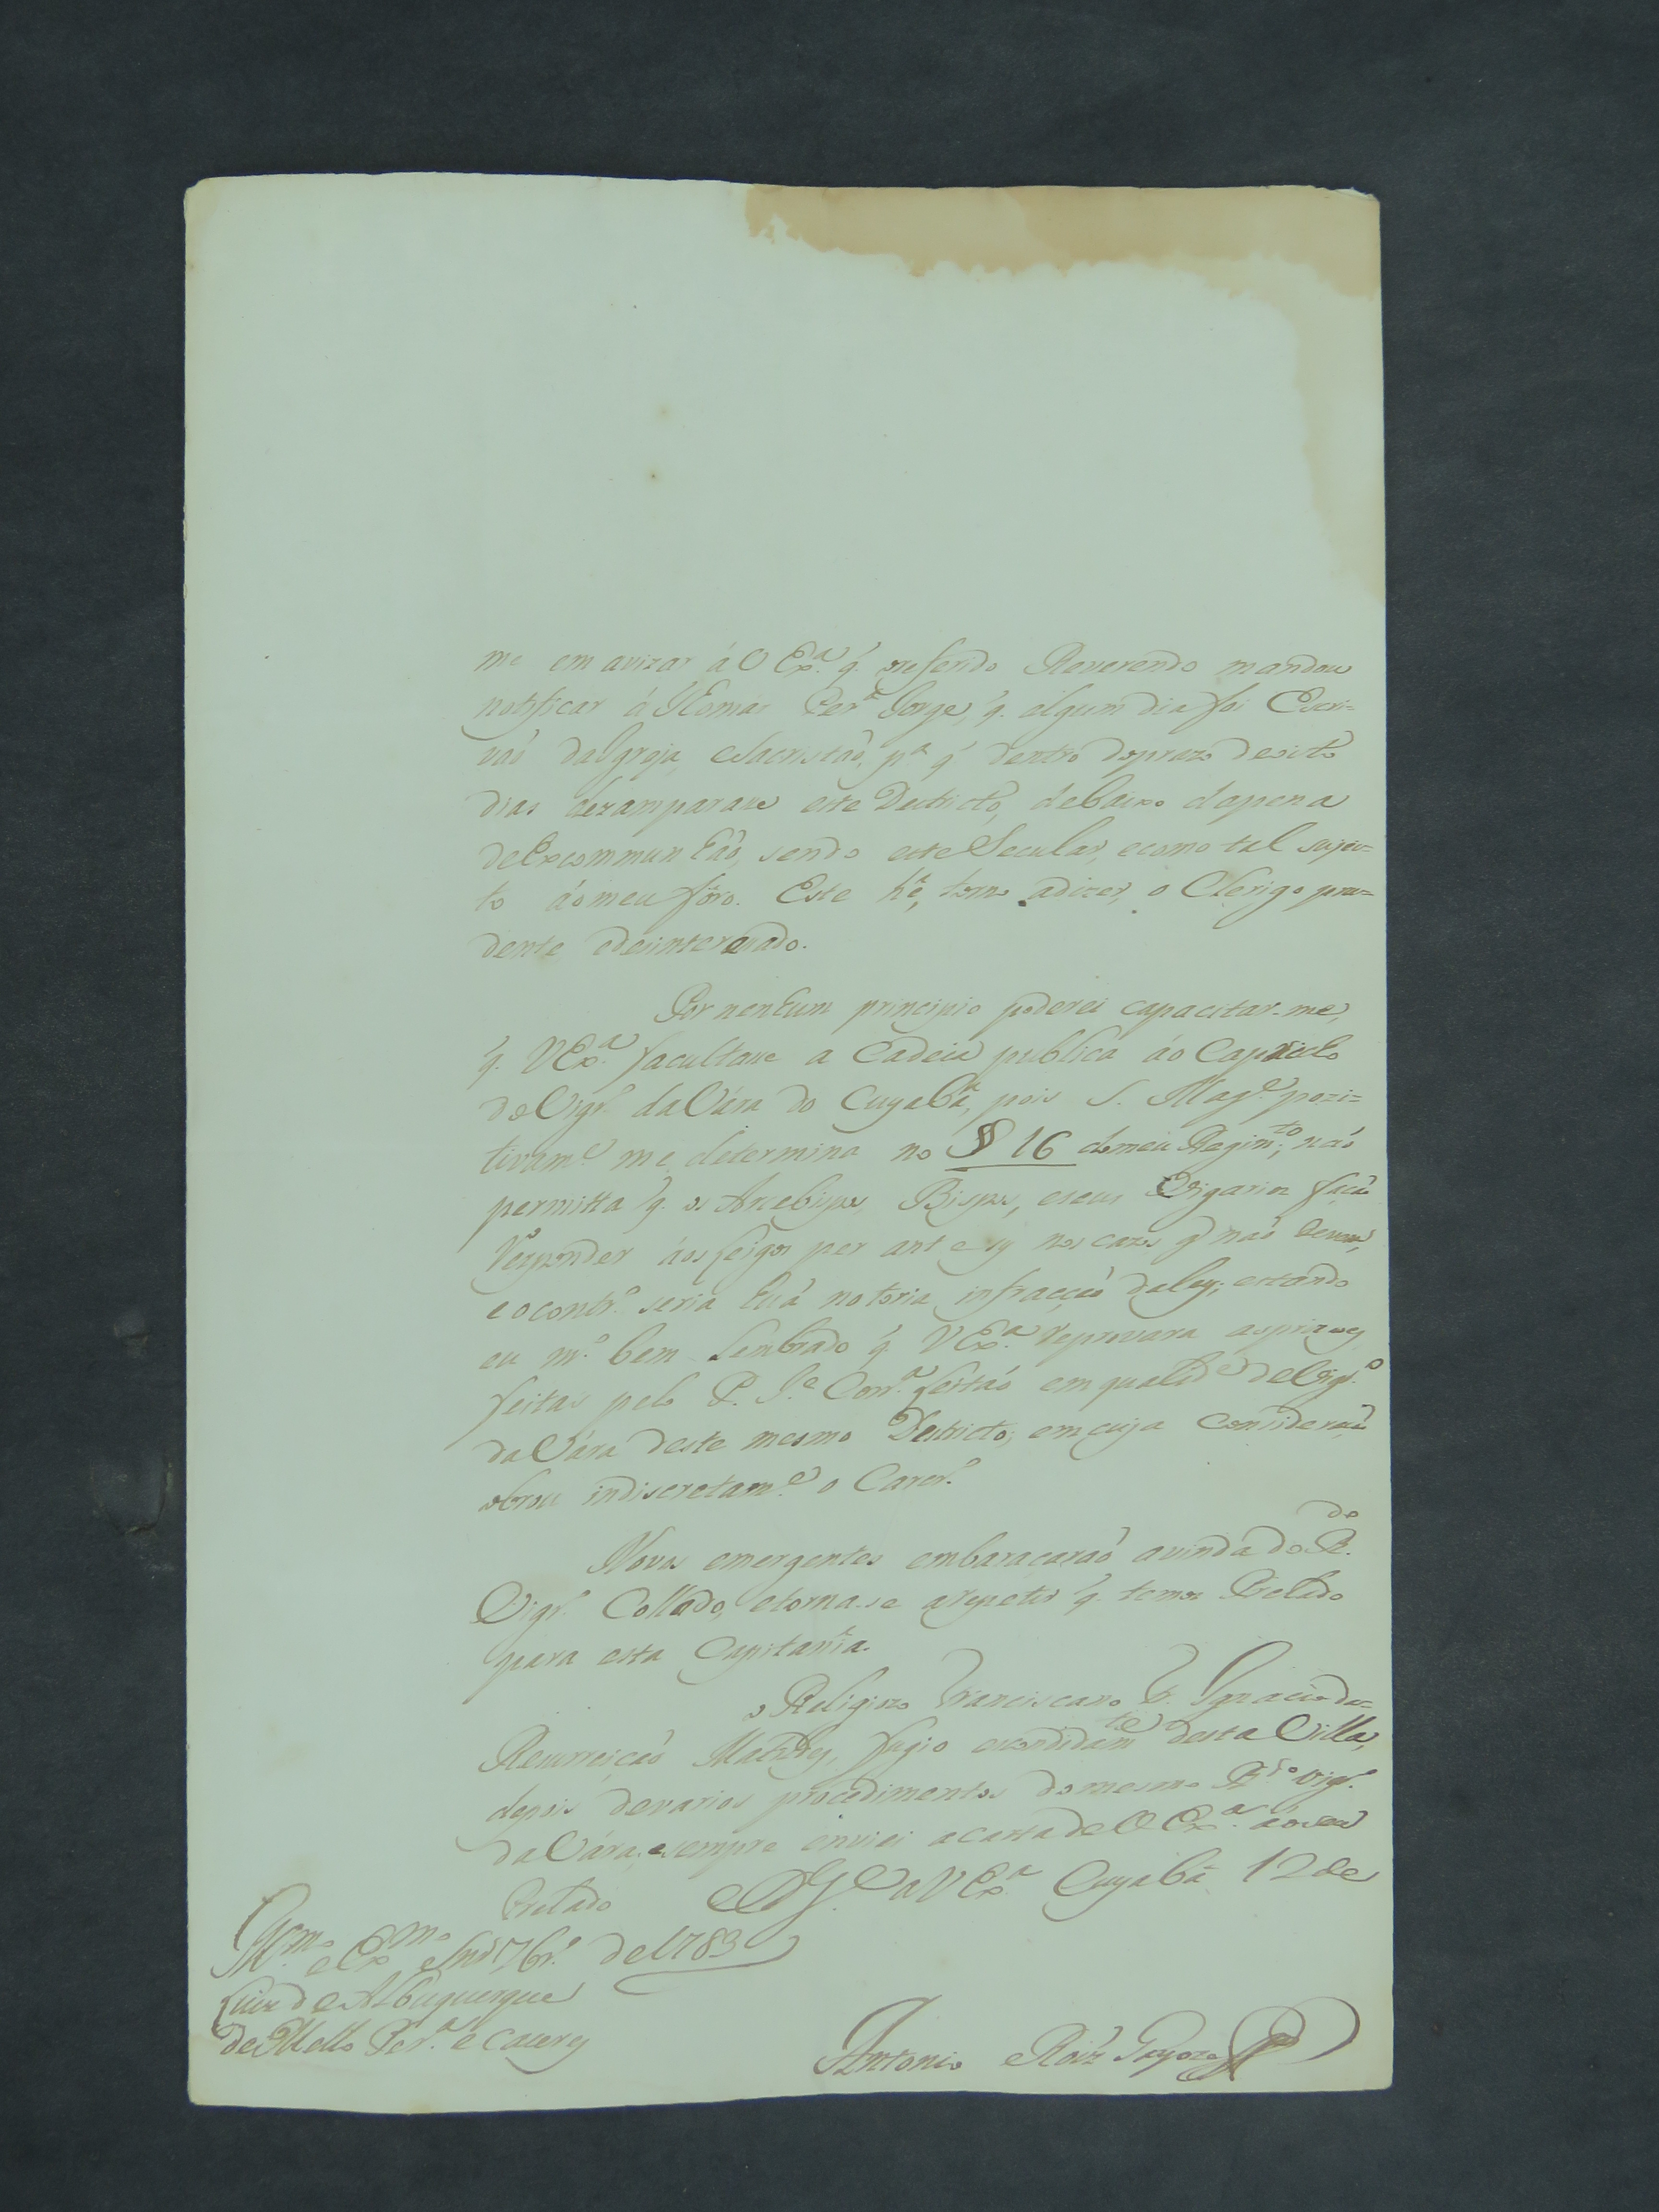 me em avizar á V Exª. q̃. o referido Reverendo mandou
notificar á Thomas Perª Jorge, q̃. algum dia foi Escri=
vaõ da Igreja, e Sacristaõ, pª q̃ dentro do prazo de oito
dias dezamparase este Destricto, debaixo da pena
de Excommunhaõ, sendo este Secular, e como tal sujei=
to áo meu foro. Este hé, torno a dizer, o Clerigo pru=
dente e desinteresado.
Por nenhum principio poderei capacitar-me,
q̃. V Exª. facultase a Cadeia publica áo
do Vigrº. da Vára do Cuyabá, pois S. Magᵉ. pozi=
tivamᵉ. me determina no § 16 do meu Regimᵗᵒ, naõ
permitta q̃. os Arcebispos, Bispos, e seus Vigarios façaõ
responder áos Leigos per ante sy nos cazos q̃ naõ devem,
e o contrº. seria huã notoria infracçaõ da ley; estando
eu mº. bem lembrado q̃. V Exª. reprovara as prizoeȷ̃
feitas pelo P. Jᵉ Corrª. Leitaõ em qualidᵉ de Vigrº
da Vára deste mesmo Destricto, em cuja consideraçaõ
obrou indiscretamᵉ. o Carcrº.
Novos emergentes embaraçaraõ a vinda do Rᵈᵒ.
Vigrº. Collado, e torna-se a repetir q̃. temos Prelado
para esta Capitania.
o Religiozo Franciscano Fr. Ignacio da=
Resurreiçaõ fugio escondidamᵗᵉ desta Villa,
depois de varios procedimentos do mesmo Rᵈᵒ Vigrº.
da Vára, e sempre enviei a carta de V Exª. áo seu
Prelado D Gᵉ a V Exª Cuyabá 12 de
Illmº e Exmº Snõr 7brº. de 1783
Luiz de Albuquerque
de Mello Perª. e Caceres
Antonio Roiz Gayozo